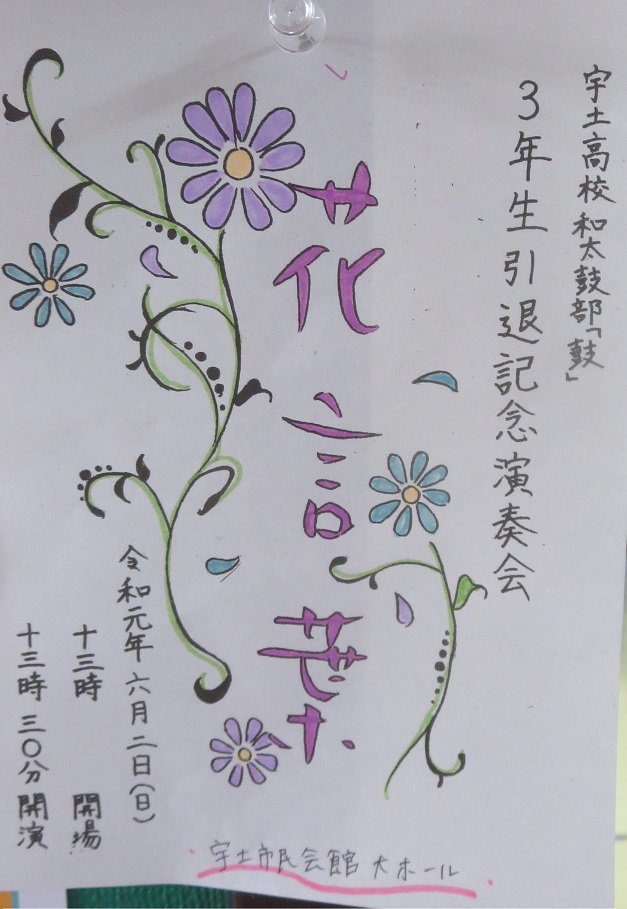 宇土高校 和太鼓部「鼓」
3年生引退記念演奏会
花言葉
令和元年 六月二日(日)
十三時 開場
十三時 三〇分 開演
宇土市民会館 大ホール